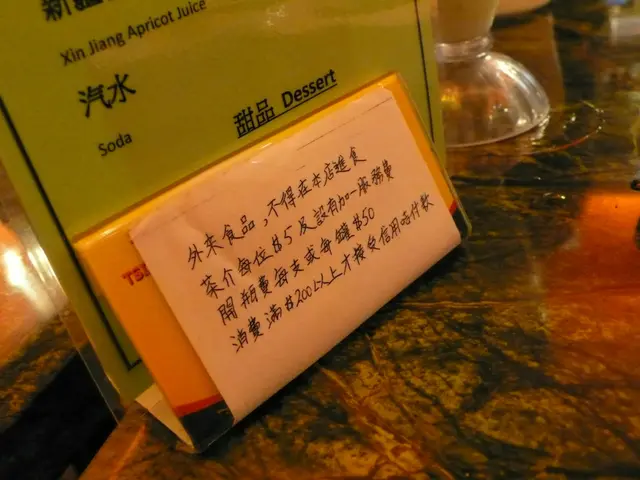 新疆
Xin Jiang Apricot Juice
汽水
Soda
甜品 Dessert
外來食品，不得在本店進食
茶介每位$5及設有加一服務費
開瓶費每支或每罐$50
消費滿$200以上才接受信用咭付款